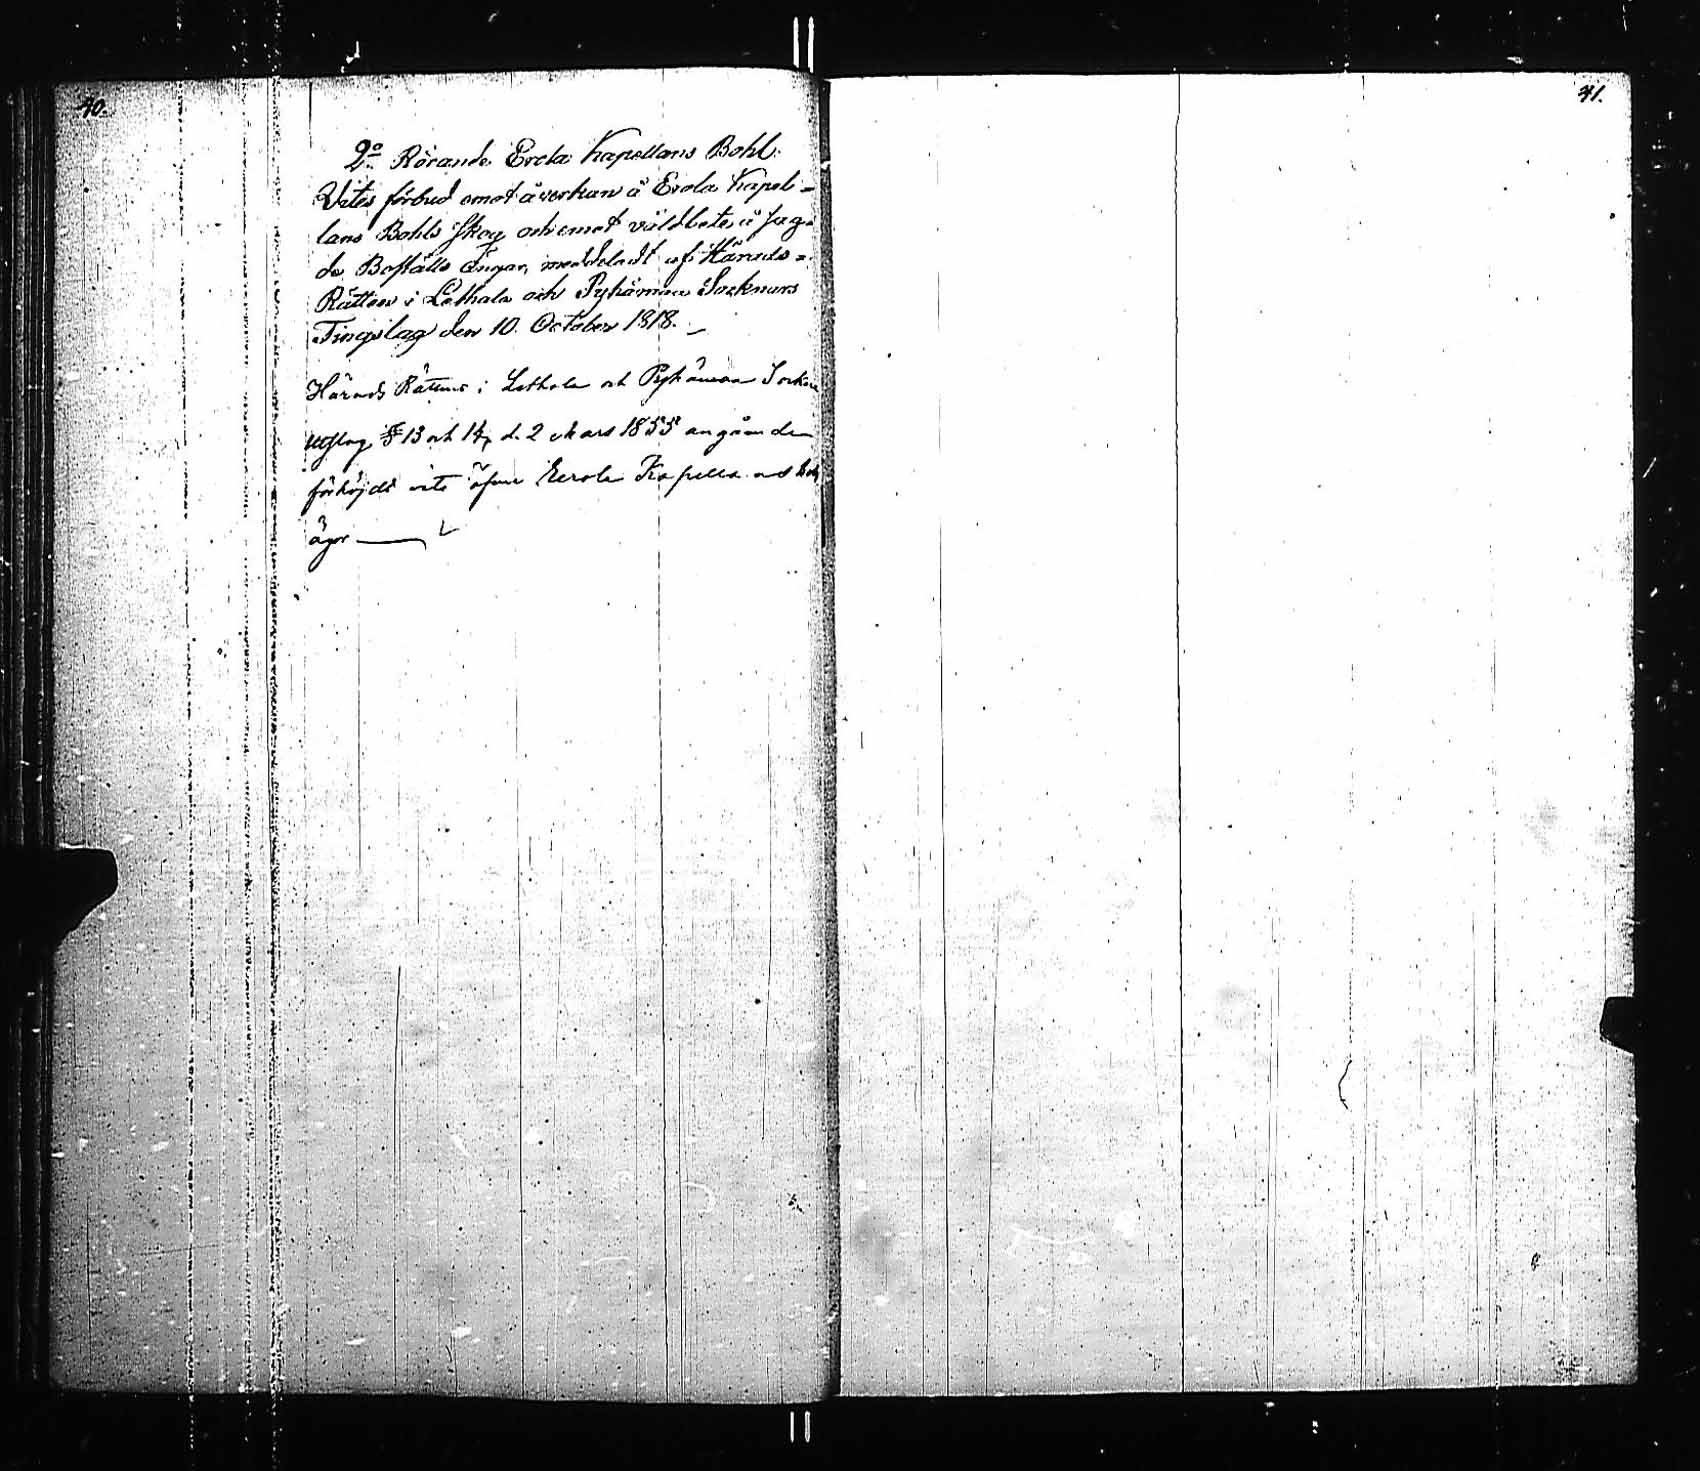 40.
2:o Rörande Erola Kapellans Bohl.
Vites förbud emot åverkan å Erola Kapel=
lans Bohls skog och emot våldbete å sag=
de Boställs ängar, meddeladt af Härads=
Rätten i Lethala och Pyhämaa Socknars
Tingslag den 10. October 1818.
Härads Rättens i Lethala och Pyhämaa Socken
utslag § 13 och 14, d. 2 Mars 1855 angående
förhöjdt vite öfver Eerola Kapellans
ägor
41.